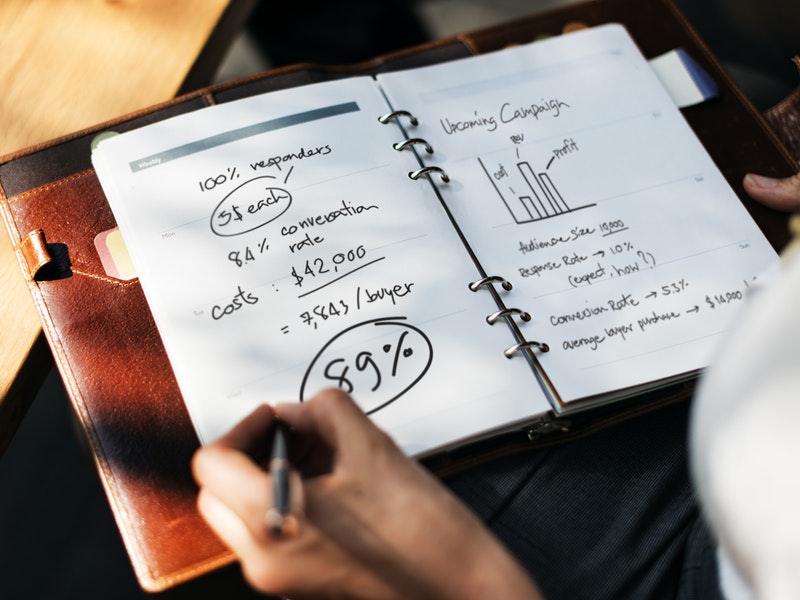 Weekly
100% responders
5$ each
Mon
8.4% conversation
rate
costs : $42,000
= 7,843 /buyer
89%
Upcoming Campaign
cost
rev
profit
Audience Size 10,000
Response Rate → 10%
(expect, how?)
Conversion Rate → 5.3%
average buyer purchase → $14,000